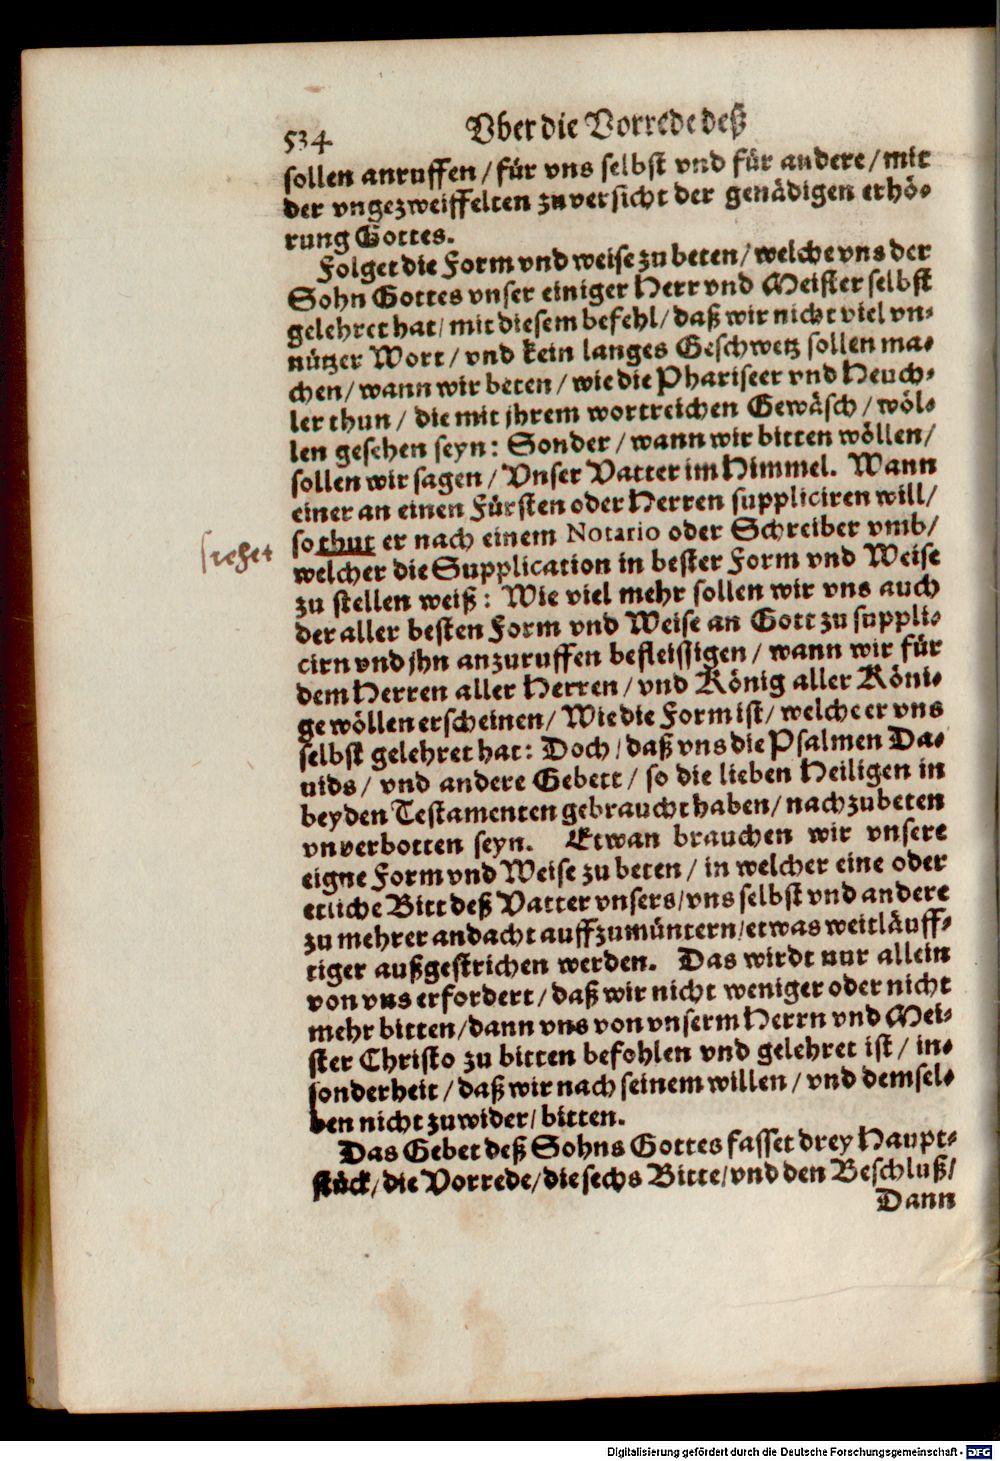 534
Vber die Vorrede deß
sollen anruffen / für vns selbst vnd für andere / mit
der vngezweiffelten zuversicht der genädigen erhö-
rung Gottes.
Folget die Form vnd weise zu beten / welche vns der
Sohn Gottes vnser einiger Herr vnd Meister selbst
gelehret hat / mit diesem befehl / daß wir nicht viel vn-
nützer Wort / vnd kein langes Geschwetz sollen ma-
chen / wann wir beten / wie die Phariseer vnd Heuch-
ler thun / die mit jhrem wortreichen Gewäsch / wöl-
len gesehen seyn: Sonder / wann wir bitten wöllen /
sollen wir sagen / Vnser Vatter im Himmel. Wann
einer an einen Fürsten oder Herren suppliciren will /
siehet
so thut er nach einem Notario oder Schreiber vmb /
welcher die Supplication in bester Form vnd Weise
zu stellen weiß: Wie viel mehr sollen wir vns auch
der aller besten Form vnd Weise an Gott zu suppli-
cirn vnd jhn anzuruffen befleissigen / wann wir für
dem Herren aller Herren / vnd König aller Köni-
ge wöllen erscheinen / Wie die Form ist / welche er vns
selbst gelehret hat: Doch / daß vns die Psalmen Da-
uids / vnd andere Gebett / so die lieben Heiligen in
beyden Testamenten gebraucht haben / nachzubeten
vnverbotten seyn. Etwan brauchen wir vnsere
eigne Form vnd Weise zu beten / in welcher eine oder
etliche Bitt deß Vatter vnsers / vns selbst vnd andere
zu mehrer andacht auffzumüntern / etwas weitläuff-
tiger außgestrichen werden. Das wirdt nur allein
von vns erfordert / daß wir nicht weniger oder nicht
mehr bitten / dann vns von vnserm Herrn vnd Mei-
ster Christo zu bitten befohlen vnd gelehret ist / in-
sonderheit / daß wir nach seinem willen / vnd demsel-
ben nicht zuwider / bitten.
Das Gebet deß Sohns Gottes fasset drey Haupt-
stück / die Vorrede / die sechs Bitte / vnd den Beschluß /
Dann
Digitalisierung gefördert durch die Deutsche Forschungsgemeinschaft - DFG